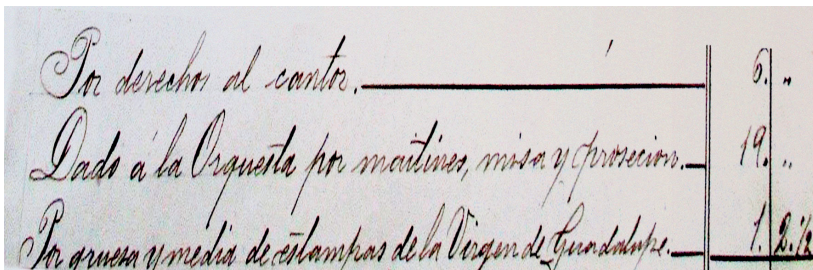 Por derechos al cantor. 6. „
Dado á la Orquesta por maitines, misa y prosecion. 19. „
Por gruesa y media de estampas de la Virgen de Guadalupe. 1. 2. ½